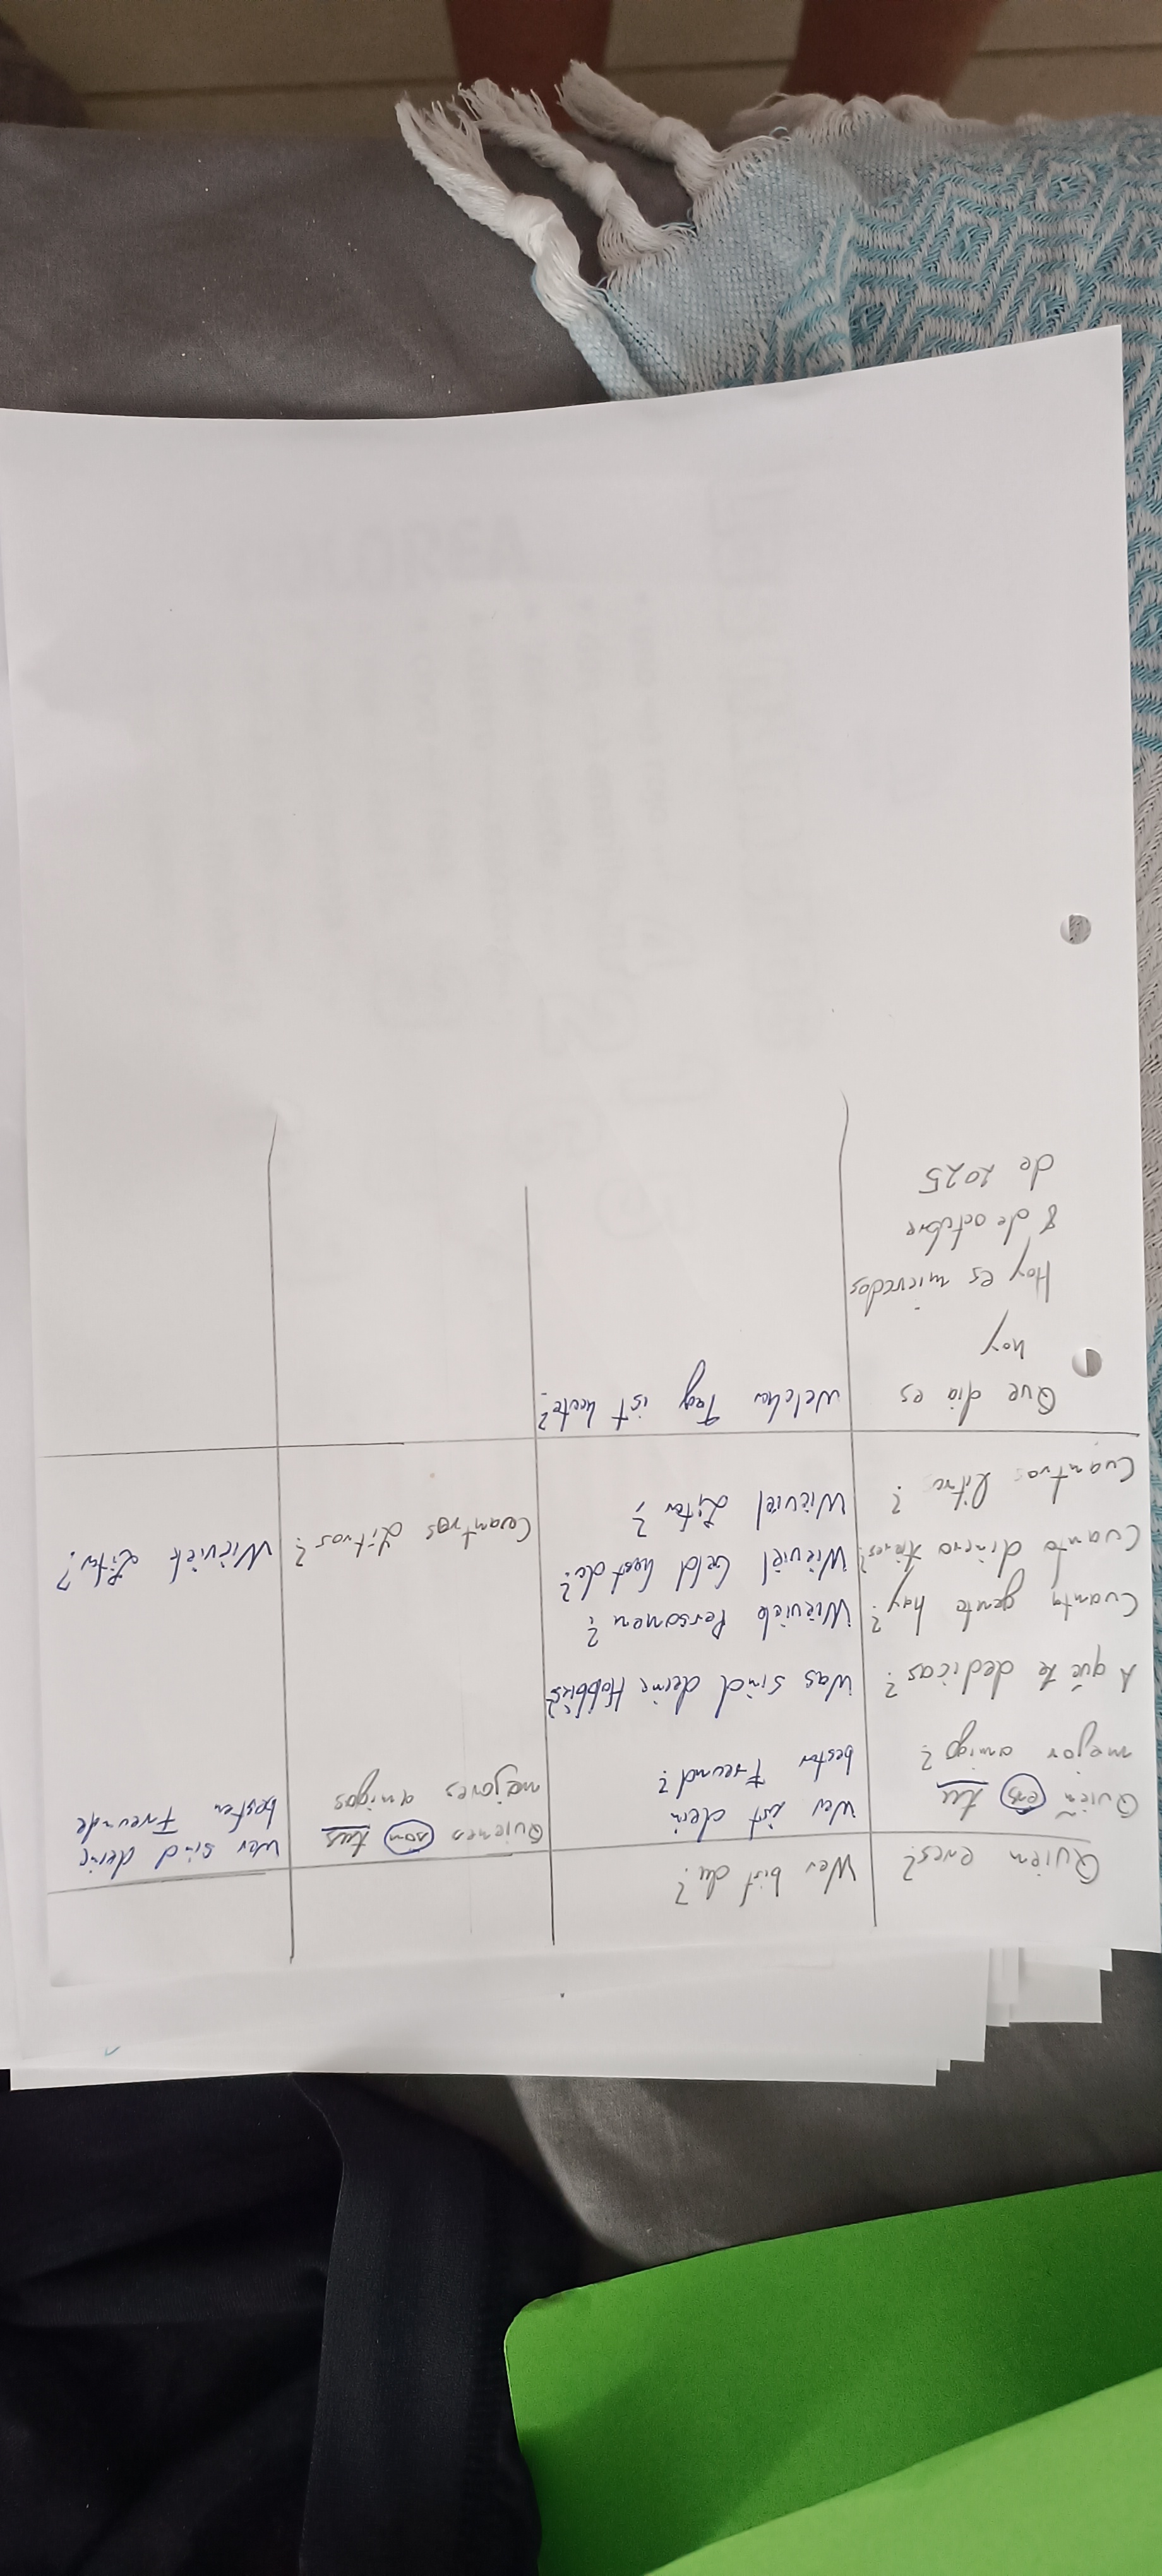 Quién eres?
Wer bist du?
Quién es tu
mejor amigo?
Wer ist dein
bester Freund?
Quienes son tus
mejores amigos
Wer sind deine
besten Freunde
A qué te dedicas?
Was sind deine Hobbies?
Cuanta gente hay?
Wieviele Personen?
Cuanto dinero tienes?
Wieviel Geld hast du?
Cuantos litros?
Wieviel Liter?
Cuantros Litros?
Wieviele Liter?
Que día es
hoy
Welcher Tag ist heute?
Hoy es miercedos
8 de octubre
de 2025